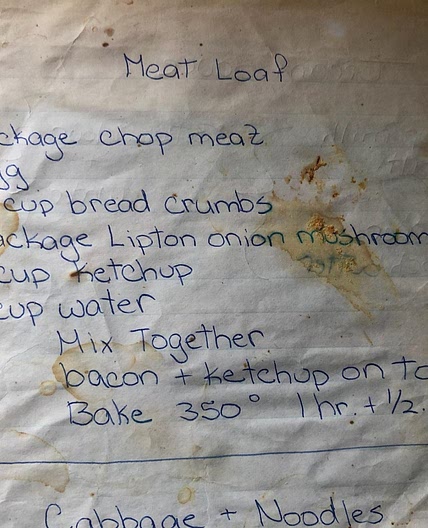 Meat Loaf
ckage chop meat
gg
cup bread crumbs
ackage Lipton onion mushroom
cup ketchup
cup water
Mix Together
bacon + ketchup on to
Bake 350° 1 hr. + 1/2.
Cabbage + Noodles